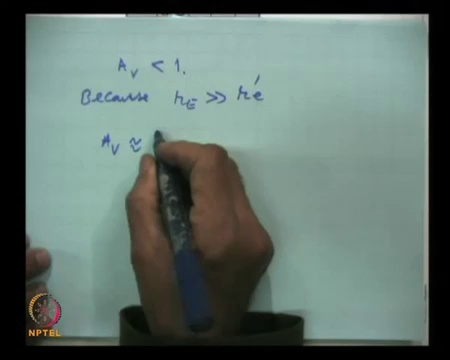 A_V < 1.
Because r_E >> r_e'
A_V ≅
NPTEL